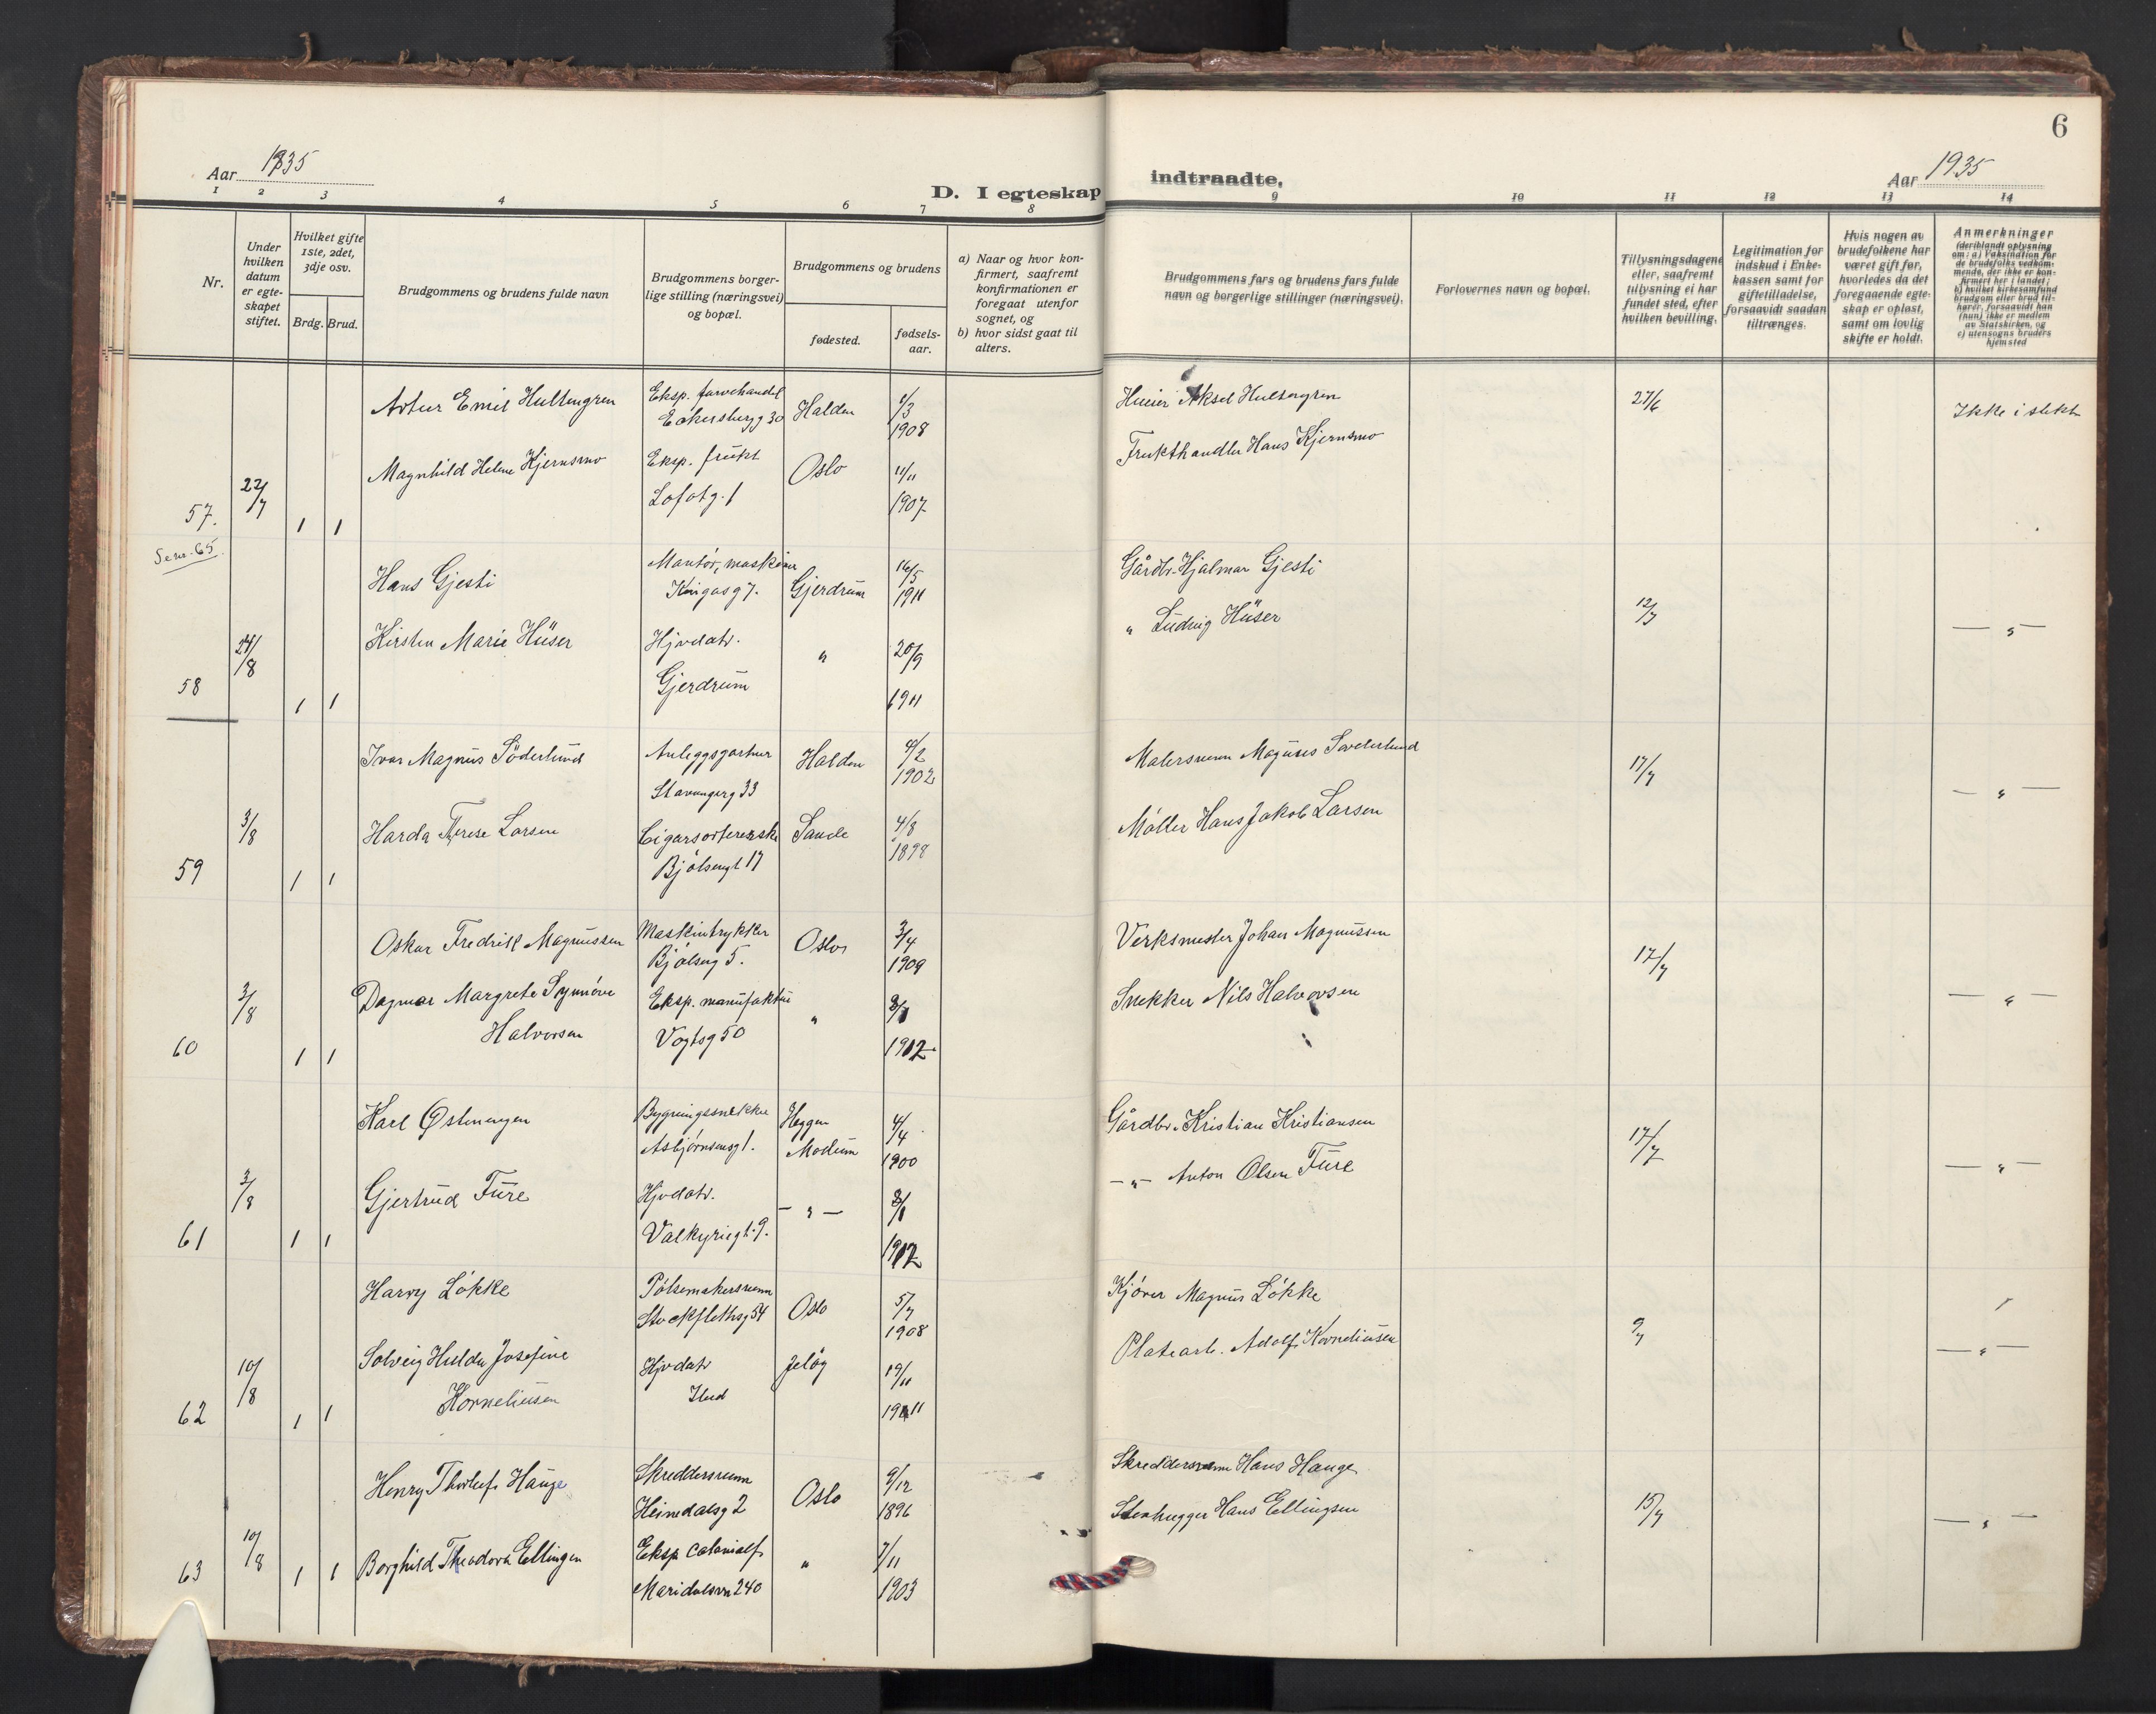 6
Aar 1935
D. I egteskap indtraadte,
Aar 1935
1 2 3 4 5 6 7 8 9 10 11 12 13 14
Nr.
Under hvilken datum er egteskapet stiftet.
Hvilket gifte 1ste, 2det, 3dje osv.
Brdg. Brud.
Brudgommens og brudens fulde navn
Brudgommens borgerlige stilling (næringsvei) og bopæl.
Brudgommens og brudens
fødested.
fødselsaar.
a) Naar og hvor konfirmert, saafremt konfirmationen er foregaat utenfor sognet, og
b) hvor sidst gaat til alters.
Brudgommens fars og brudens fars fulde navn og borgerlige stillinger (næringsvei).
Forlovernes navn og bopæl.
Tillysningsdagene eller, saafremt tillysning ei har fundet sted, efter hvilken bevilling.
Legitimation for indskud i Enkekassen samt for giftetilladelse, forsaavidt saadan tiltrænges.
Hvis nogen av brudefolkene har været gift før, hvorledes da det foregaaende egteskap er opløst, samt om lovlig skifte er holdt.
Anmerkninger
(deriblandt oplysning om: a) Vaksination for de brudefolks vedkommende, der ikke er konfirmert her i landet; b) hvilket kirkesamfund brudgom eller brud tilhører, forsaavidt han (hun) ikke er medlem av Statskirken, og c) utensogns bruders hjemsted
57. 22/7 1 1
Artur Emil Hultengren Eksp. farvehandel Eckersbergg 30 Halden 1/3 1908 Aksel Hultengren 27/6 Ikke i slekt
Magnhild Helene Kjernsmo Eksp. frukt Lofotg. 1 Oslo 11/11 1907 Frukthandler Hans Kjernsmo
Se nr. 65.
58 24/8 1 1
Hans Gjesti Montør, maskiner g 7. Gjerdrum 16/5 1911 Gårdbr. Hjalmar Gjesti 12/7
Kirsten Marie Hüser Hjvdatr. Gjerdrum " 20/9 1911 " Ludvig Hüser — " —
59 3/8 1 1
Ivar Magnus Söderlund Anleggsgartner Stavangerg 33 Halden 4/2 1902 Malersvenn Magnus Søderlund 17/7 — " —
Harda Therese Larsen Cigarsortererske Bjølsengt 17 Sande 4/8 1898 Møller Hans Jakob Larsen
60 3/8 1 1
Oskar Fredrik Magnussen Maskintrykker Bjølseng 5. Oslo 3/4 1909 Verksmester Johan Magnussen 17/7
Dagmar Margrete Synnøve Halvorsen Eksp. manufaktur Vogtsg 50 " 1912 Snekker Nils Halvorsen — " —
61 3/8 1 1
Karl Østmengen Bygningssnekker Asbjørnsensg 1. Heggen Modum 4/4 1900 Gårdbr. Kristian Kristiansen 17/7
Gjertrud Fure Hjvdatr. Valkyriegt. 9. — " — 1912 — " — Anton Olsen Fure — " —
62 10/8 1 1
Harry Løkke Pølsemakersvenn Stockflethsg 54 Oslo 5/7 1908 Kjører Magnus Løkke 9/7
Solveig Hulda Josefine Korneliusen Hjvdatr Jeløy 19/11 1911 Platearb. Adolf Korneliusen — " —
63 10/8 1 1
Henry Thorleif Hauge Skreddersvenn Heimdalsg 2 Oslo 9/12 1896 Skreddersvenn Hans Hauge 15/7
Borghild Theodora Ellingsen Eksp. colonialf. Maridalsvn 240 " 7/11 1903 Stenhugger Hans Ellingsen — " —